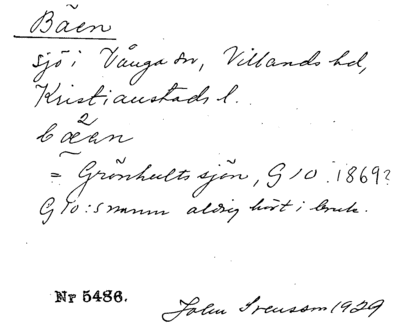 Bäen
sjö i Vånga sn, Villands hd,
Kristianstads l.
bæ²an
= Grönhults sjön, G 10. 1869?
G 10:s namn aldrig hört i bruk.
Nr 5486.
John Svensson 1929